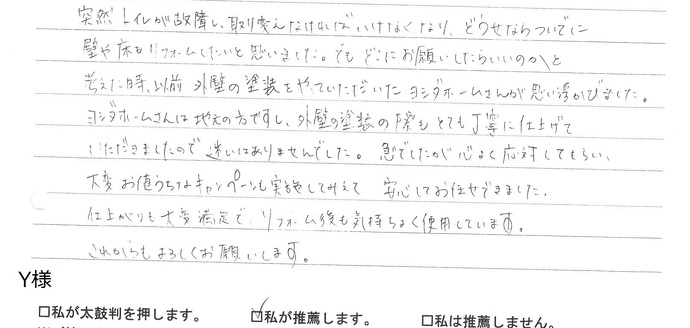 突然トイレが故障し、取り変えなければいけなくなり、どうせならついでに
壁や床もリフォームしたいと思いました。でもどこにお願いしたらいいのかと
考えた時、以前外壁の塗装をやっていただいたヨシダホームさんが思い浮かびました。
ヨシダホームさんは地元の方ですし、外壁の塗装の際もとても丁寧に仕上げて
いただきましたので迷いはありませんでした。急でしたが心よく応対してもらい、
大変お値うちなキャンペーンも実施してみえて安心してお任せできました。
仕上がりも大変満足で、リフォーム後も気持ちよく使用しています。
これからもよろしくお願いします。
Y様
□私が太鼓判を押します。 ☑私が推薦します。 □私は推薦しません。